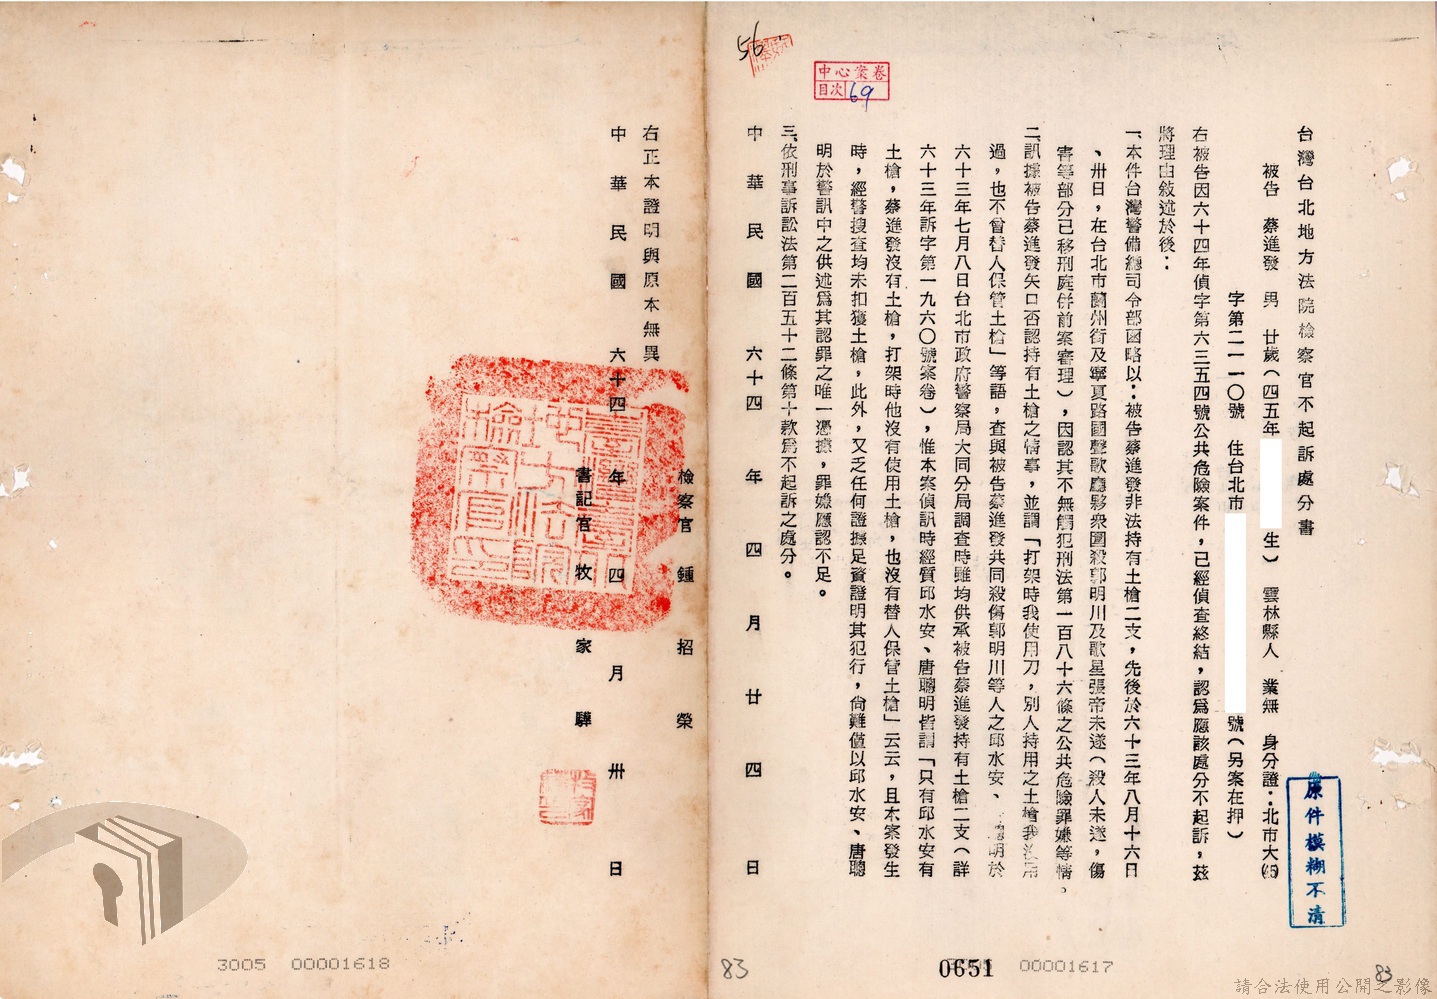 台灣台北地方法院檢察官不起訴處分書
被告　蔡進發　男　廿歲（四五年　　生）　雲林縣人　業無　身分證：北市大(45)
字第二一一〇號　住台北市　　號（另案在押）
右被告因六十四年偵字第六三五四號公共危險案件，已經偵查終結，認為應該處分不起訴，茲
將理由敘述於後：
一、本件台灣警備總司令部函略以：被告蔡進發非法持有土槍二支，先後於六十三年八月十六日
、卅日，在台北市蘭州街及寧夏路國聲歌廳夥衆圍殺郭明川及歌星張帝未遂（殺人未遂，傷
害等部分已移刑庭併前案審理），因認其不無觸犯刑法第一百八十六條之公共危險罪嫌等情。
二、訊據被告蔡進發矢口否認持有土槍之情事，並謂「打架時我使用刀，別人持用之土槍我沒用
過，也不曾替人保管土槍」等語，查與被告蔡進發共同殺傷郭明川等人之邱水安、唐聰明於
六十三年七月八日台北市政府警察局大同分局調查時雖均供承被告蔡進發持有土槍二支（詳
六十三年訴字第一九六〇號案卷），惟本案偵訊時經質邱水安、唐聰明皆謂「只有邱水安有
土槍，蔡進發沒有土槍，打架時他沒有使用土槍，也沒有替人保管土槍」云云，且本案發生
時，經警搜查均未扣獲土槍，此外，又乏任何證據足資證明其犯行，尚難僅以邱水安、唐聰
明於警訊中之供述為其認罪之唯一憑據，罪嫌應認不足。
三、依刑事訴訟法第二百五十二條第十款為不起訴之處分。
中華民國六十四年四月廿四日
檢察官　鍾招榮
右正本證明與原本無異
中華民國六十四年四月卅日
書記官　牧家驊
56
中心案卷
目次 69
原件模糊不清
3005 00001618
83
0651
00001617
83
請合法使用公開之影像